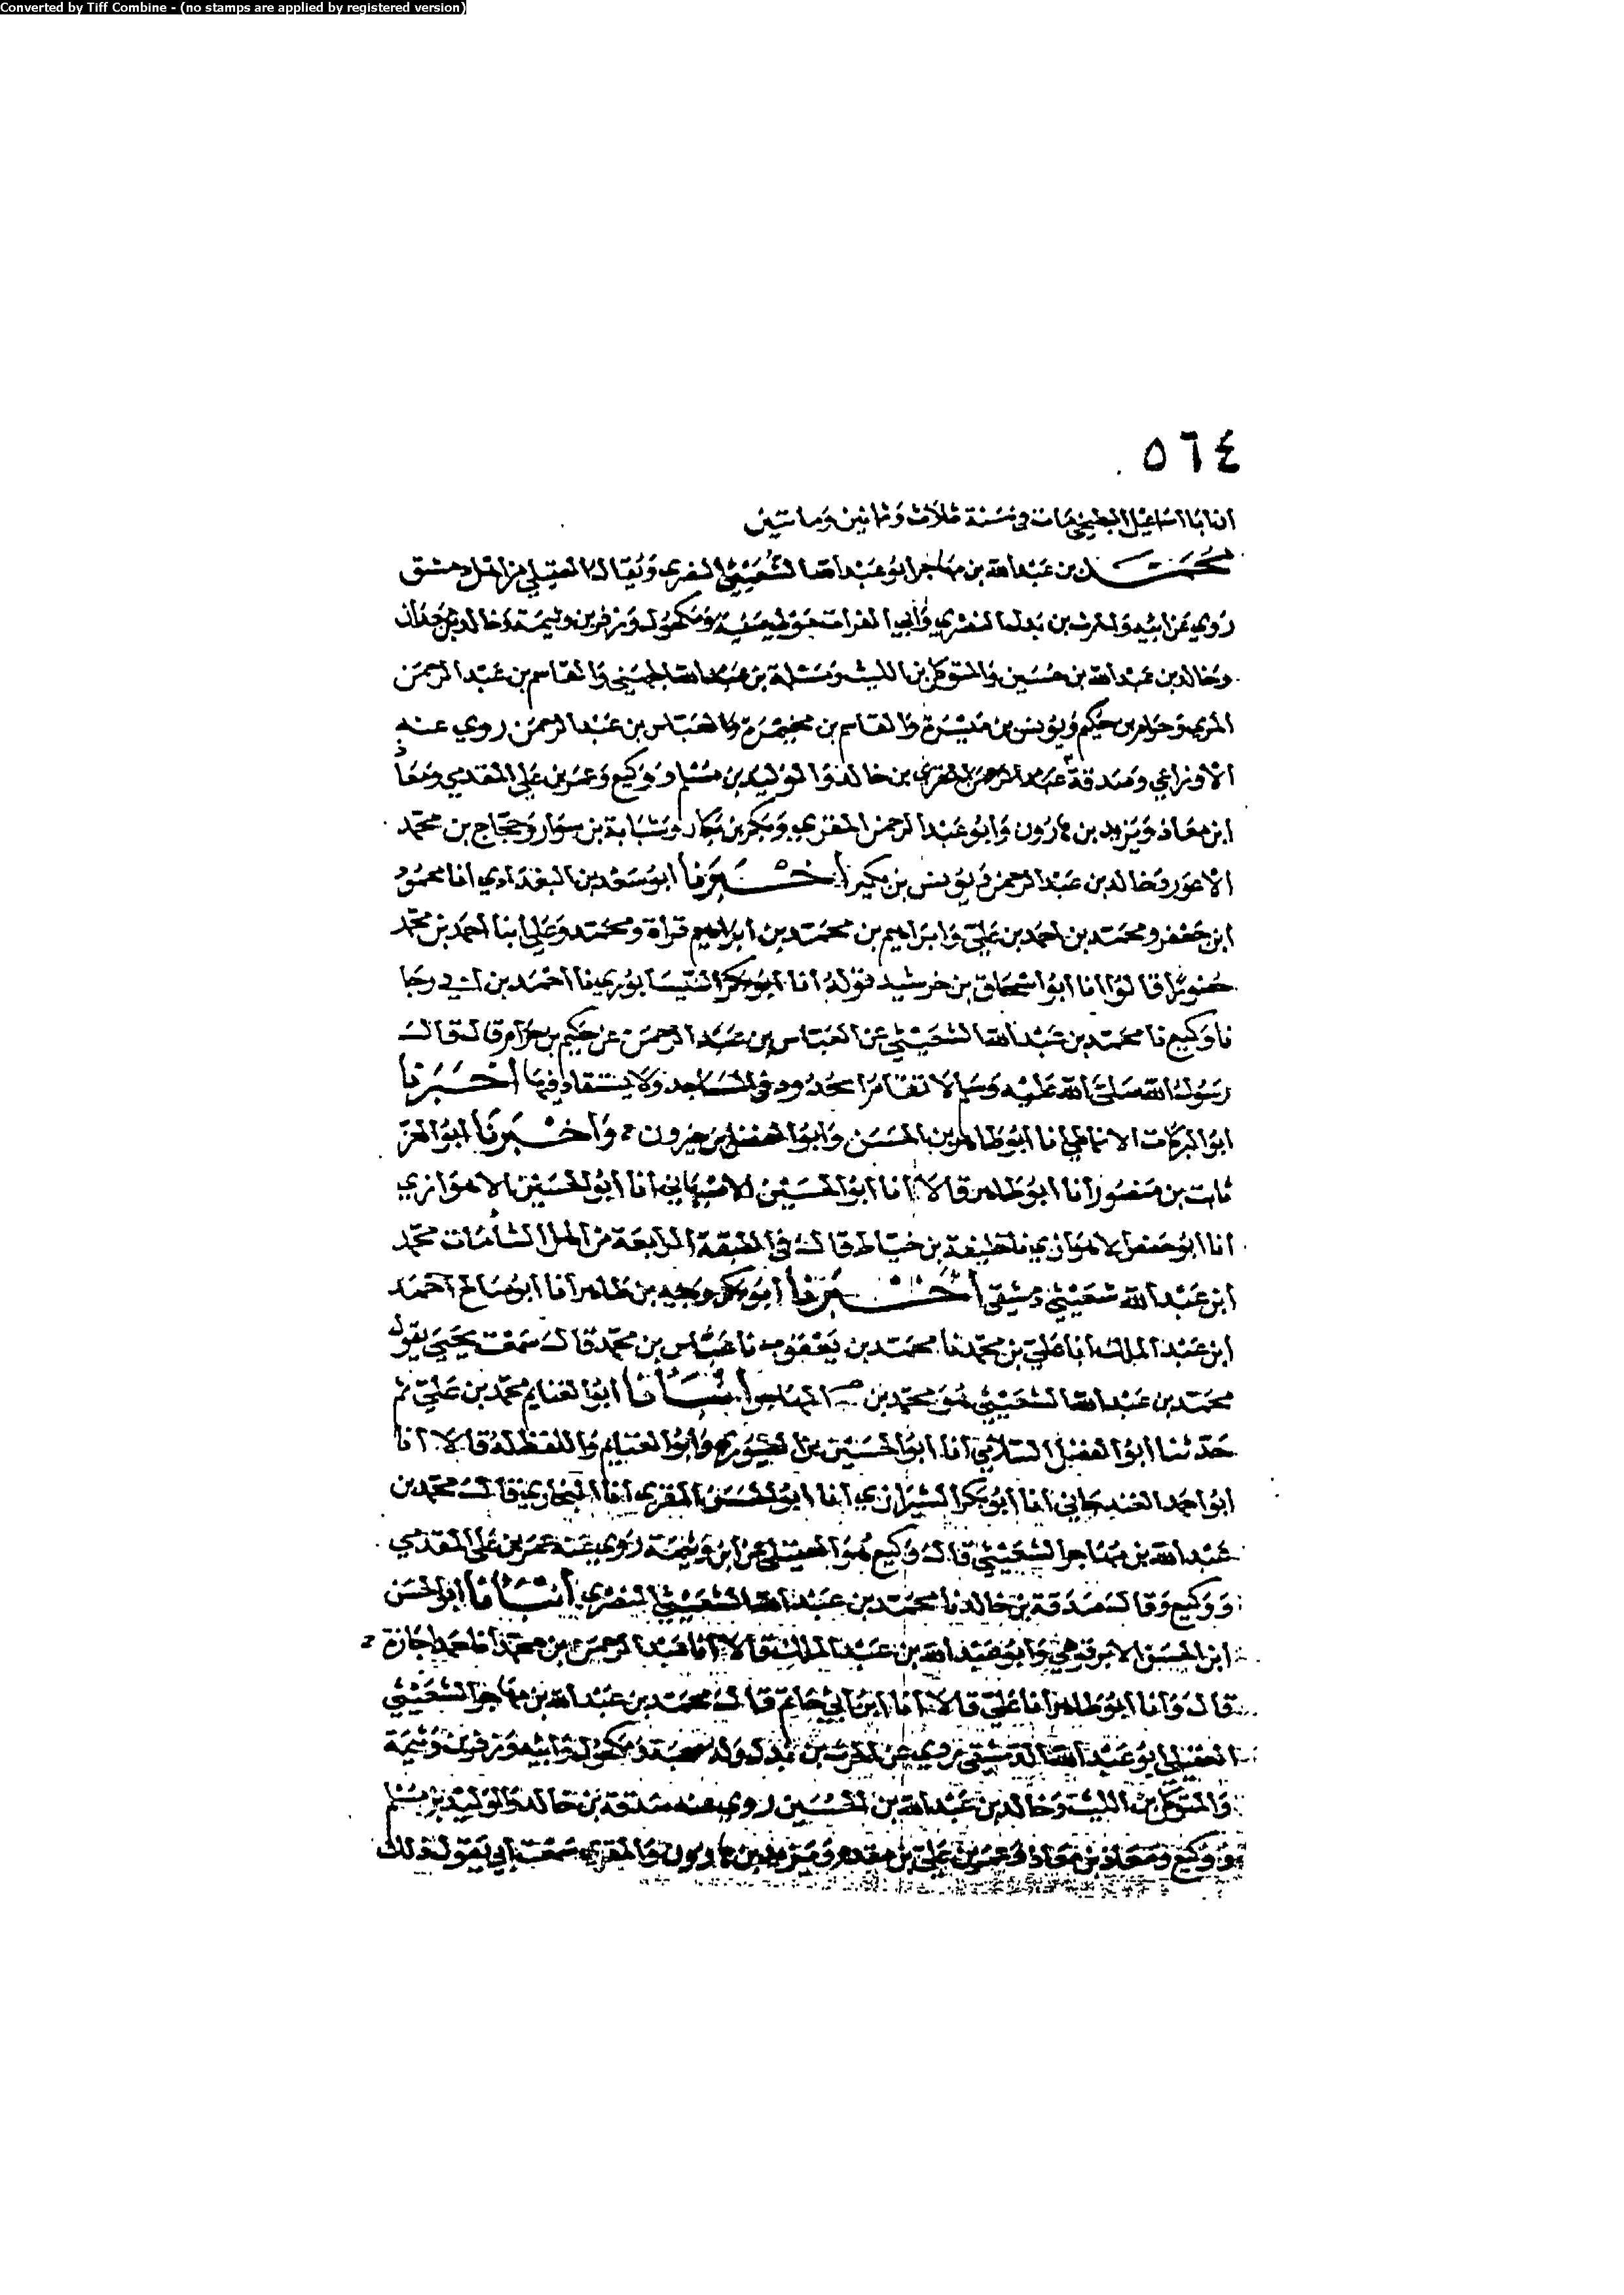 Converted by Tiff Combine - (no stamps are applied by registered version)
٥٦٤
ان ابا اسماعيل البطيخي مات في سنة ثلاث وثمانين وماتين
محمد بن عبد الله بن مهاجر ابو عبد الله الشعيثي النصري ويقال العقيلي من اهل دمشق
روي عن ابيه والحرث بن بدل النصري وابي الفرات مولى صفية ومكحول وزفر بن وثيمة وخالد بن معدان
وخالد بن عبد الله بن حسين والمتوكل بن الليث ومسلمة بن عبد الله الجهني والقاسم بن عبد الرحمن
المزي وحرام بن حكيم ويونس بن ميسرة والقاسم بن مخيمرة والعباس بن عبد الرحمن روي عنه
الاوزاعي وصدقة بن خالد والوليد بن مسلم ووكيع وعمر بن علي المقدمي ومعاذ
ابن معاذ ويزيد بن هارون وابو عبد الرحمن المقري وبكر بن بكار وشبابة بن سوار وحجاج بن محمد
الاعور وخالد بن عبد الرحمن ويونس بن بكير اخبرنا ابو سعد بن البغدادي انا محمود
ابن جعفر ومحمد بن احمد بن علي وابراهيم بن محمد بن ابراهيم قراة ومحمد وعلي ابنا احمد بن محمد
حضورا قالوا انا ابو اسحاق بن خرشيد قوله انا ابو بكر النيسابوري نا احمد بن ابي رجا
نا وكيع نا محمد بن عبد الله الشعيثي عن العباس بن عبد الرحمن عن حكيم بن حزام قال قال
رسول الله صلى الله عليه وسلم لا تقام الحدود في المساجد ولا يستقاد فيها اخبرنا
ابو البركات الانماطي انا ابو طاهر بن الحسن وابو الفضل بن خيرون ح واخبرنا ابو العز
ثابت بن منصور انا ابو طاهر قالا انا ابو الحسين الاصبهاني انا ابو الحسين الاهوازي
انا ابو حفص الاهوازي نا خليفة بن خياط قال في الطبقة الرابعة من اهل الشامات محمد
ابن عبد الله شعيثي دمشقي اخبرنا ابو بكر وجيه بن طاهر انا ابو صالح احمد
ابن عبد الملك انا علي بن محمد نا محمد بن يعقوب نا عباس بن محمد قال سمعت يحيى يقول
محمد بن عبد الله الشعيثي هو محمد بن المهاجر انبانا ابو الغنايم محمد بن علي ثم
حدثنا ابو الفضل السلامي انا ابو الحسين بن الطيوري وابو الغنايم واللفظ له قالا انا
ابو احمد الغندجاني انا ابو بكر الشيرازي انا ابو الحسن المقري انا البخاري قال محمد بن
عبد الله بن مهاجر الشعيثي قال وكيع هو العقيلي عن ابن وثيمة روي عنه عمر بن علي المقدمي
ووكيع وقال صدقة بن خالد نا محمد بن عبد الله الشعيثي النصري انبانا ابو الحسن
ابن الحسن الابرقوهي وابو عبد الله بن عبد الملك قالا انا عبد الرحمن بن محمد انا حمد اجازة ح
قال وانا ابو طاهر انا علي قالا انا ابن ابي حاتم قال محمد بن عبد الله بن مهاجر الشعيثي
العقيلي ابو عبد الله الدمشقي روي عن الحرث بن بدل وله صحبة ومكحول وابيه وزفر بن وثيمة
والمتوكل بن الليث وخالد بن عبد الله بن الحسين روي عنه صدقة بن خالد والوليد بن مسلم
ووكيع ومعاذ بن معاذ وعمر بن علي بن مقدم ويزيد بن هارون والمقري سمعت ابي يقول ذلك